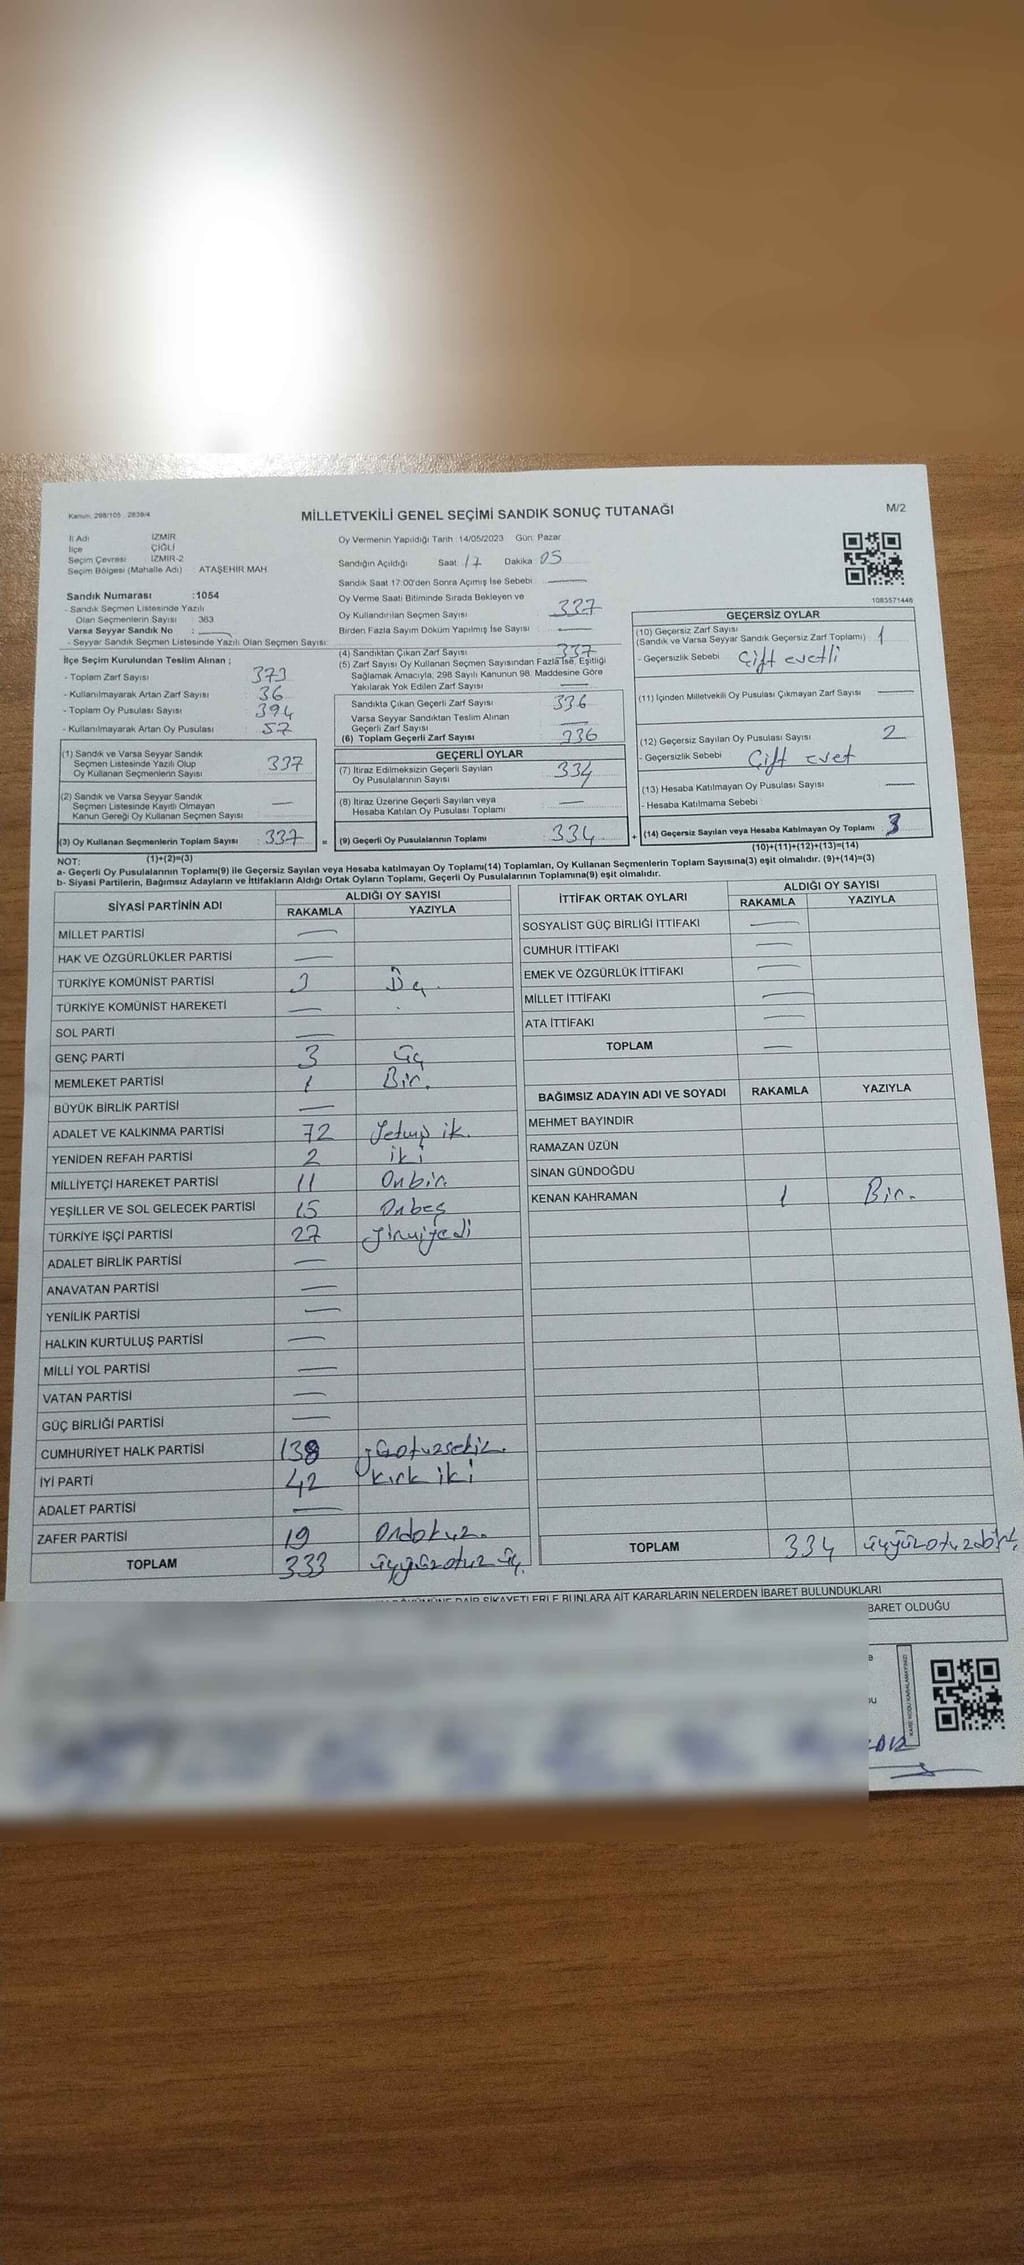 Kanun: 298/105 , 2839/4
MİLLETVEKİLİ GENEL SEÇİMİ SANDIK SONUÇ TUTANAĞI
M/2
İl Adı İZMİR
İlçe ÇİĞLİ
Seçim Çevresi : İZMİR-2
Seçim Bölgesi (Mahalle Adı) : ATAŞEHİR MAH.
Sandık Numarası :1054
- Sandık Seçmen Listesinde Yazılı
Olan Seçmenlerin Sayısı : 363
Varsa Seyyar Sandık No : —
- Seyyar Sandık Seçmen Listesinde Yazılı Olan Seçmen Sayısı:
İlçe Seçim Kurulundan Teslim Alınan ;
- Toplam Zarf Sayısı 373
- Kullanılmayarak Artan Zarf Sayısı 36
- Toplam Oy Pusulası Sayısı 394
- Kullanılmayarak Artan Oy Pusulası 57
(1) Sandık ve Varsa Seyyar Sandık
Seçmen Listesinde Yazılı Olup
Oy Kullanan Seçmenlerin Sayısı 337
(2) Sandık ve Varsa Seyyar Sandık
Seçmen Listesinde Kayıtlı Olmayan
Kanun Gereği Oy Kullanan Seçmen Sayısı —
(3) Oy Kullanan Seçmenlerin Toplam Sayısı 337 =
(1)+(2)=(3)
Oy Vermenin Yapıldığı Tarih :14/05/2023 Gün: Pazar
Sandığın Açıldığı Saat : 17 Dakika : 05
Sandık Saat 17:00'den Sonra Açımış İse Sebebi : —
Oy Verme Saati Bitiminde Sırada Bekleyen ve
Oy Kullandırılan Seçmen Sayısı : 337
Birden Fazla Sayım Döküm Yapılmış İse Sayısı : —
(4) Sandıktan Çıkan Zarf Sayısı : 337
(5) Zarf Sayısı Oy Kullanan Seçmen Sayısından Fazla İse, Eşitliği
Sağlamak Amacıyla, 298 Sayılı Kanunun 98. Maddesine Göre
Yakılarak Yok Edilen Zarf Sayısı : —
Sandıkta Çıkan Geçerli Zarf Sayısı : 336
Varsa Seyyar Sandıktan Teslim Alınan
Geçerli Zarf Sayısı : —
(6) Toplam Geçerli Zarf Sayısı : 336
GEÇERLİ OYLAR
(7) İtiraz Edilmeksizin Geçerli Sayılan
Oy Pusulalarının Sayısı 334
(8) İtiraz Üzerine Geçerli Sayılan veya
Hesaba Katılan Oy Pusulası Toplamı —
(9) Geçerli Oy Pusulalarının Toplamı 334 +
1083571446
GEÇERSİZ OYLAR
(10) Geçersiz Zarf Sayısı
(Sandık ve Varsa Seyyar Sandık Geçersiz Zarf Toplamı) : 1
- Geçersizlik Sebebi : Çift evetli
(11) İçinden Milletvekili Oy Pusulası Çıkmayan Zarf Sayısı : —
(12) Geçersiz Sayılan Oy Pusulası Sayısı : 2
- Geçersizlik Sebebi : Çift evet
(13) Hesaba Katılmayan Oy Pusulası Sayısı : —
- Hesaba Katılmama Sebebi :
(14) Geçersiz Sayılan veya Hesaba Katılmayan Oy Toplamı 3
(10)+(11)+(12)+(13)=(14)
NOT:
a- Geçerli Oy Pusulalarının Toplamı(9) ile Geçersiz Sayılan veya Hesaba katılmayan Oy Toplamı(14) Toplamları, Oy Kullanan Seçmenlerin Toplam Sayısına(3) eşit olmalıdır. (9)+(14)=(3)
b- Siyasi Partilerin, Bağımsız Adayların ve İttifakların Aldığı Ortak Oyların Toplamı, Geçerli Oy Pusulalarının Toplamına(9) eşit olmalıdır.
SİYASİ PARTİNİN ADI ALDIĞI OY SAYISI
RAKAMLA YAZIYLA
MİLLET PARTİSİ —
HAK VE ÖZGÜRLÜKLER PARTİSİ —
TÜRKİYE KOMÜNİST PARTİSİ 3 Üç.
TÜRKİYE KOMÜNİST HAREKETİ —
SOL PARTİ —
GENÇ PARTİ 3 üç
MEMLEKET PARTİSİ 1 Bir.
BÜYÜK BİRLİK PARTİSİ —
ADALET VE KALKINMA PARTİSİ 72 Yetmiş ik.
YENİDEN REFAH PARTİSİ 2 iki
MİLLİYETÇİ HAREKET PARTİSİ 11 Onbir.
YEŞİLLER VE SOL GELECEK PARTİSİ 15 Onbeş
TÜRKİYE İŞÇİ PARTİSİ 27 yirmiyedi
ADALET BİRLİK PARTİSİ —
ANAVATAN PARTİSİ —
YENİLİK PARTİSİ —
HALKIN KURTULUŞ PARTİSİ —
MİLLİ YOL PARTİSİ —
VATAN PARTİSİ —
GÜÇ BİRLİĞİ PARTİSİ —
CUMHURİYET HALK PARTİSİ 138
İYİ PARTİ 42 kırk iki
ADALET PARTİSİ —
ZAFER PARTİSİ 19 Ondokuz.
TOPLAM 333 üçyüzotuz üç.
İTTİFAK ORTAK OYLARI ALDIĞI OY SAYISI
RAKAMLA YAZIYLA
SOSYALİST GÜÇ BİRLİĞİ İTTİFAKI —
CUMHUR İTTİFAKI —
EMEK VE ÖZGÜRLÜK İTTİFAKI —
MİLLET İTTİFAKI —
ATA İTTİFAKI —
TOPLAM —
BAĞIMSIZ ADAYIN ADI VE SOYADI RAKAMLA YAZIYLA
MEHMET BAYINDIR
RAMAZAN ÜZÜN
SİNAN GÜNDOĞDU
KENAN KAHRAMAN 1 Bir.
TOPLAM 334 üçyüzotuzdört.
ŞİKAYETLERLE BUNLARA AİT KARARLARIN NELERDEN İBARET BULUNDUKLARI
BARET OLDUĞU